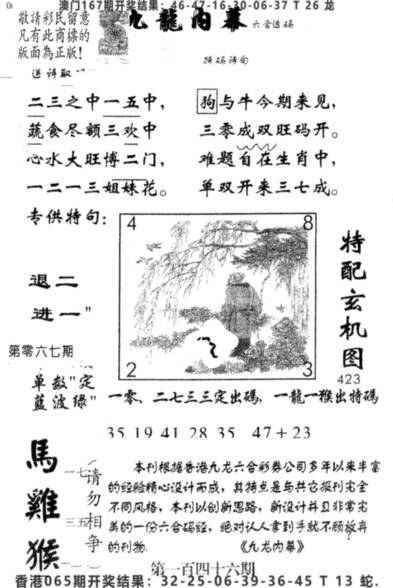 澳门167期开奖结果：46-47-16-30-06-37 T 26 龙
敬請彩民留意
凡有此商標的
版面為正版!
九龍内幕 六合透码
特码诗句
二三之中一五中，
狗与牛今期来见，
蔬食尽额三欢中
三零成双旺码开。
心水大旺博二门，
难题自在生肖中，
一二一三姐妹花。
单双开来三七成。
专供特句：
4 8
2 3
退二
进一"
第零六七期
单数"定
蓝波绿"
特配玄机图
423
一零、二七三三定出碼，一龍一猴出特碼
35 19 41 28 35 47+23
馬雞猴
一七
三五
（请勿相争）
本刊根据香港九龙六合彩券公司多年以来丰富
的经验精心设计而成，其特点是与其它报刊完全
不同风格，本刊以创新思路，新设计并且非常完
美的一份六合码经，绝对认人拿到手就不愿放弃
的刊物。 《九龙内幕》
第一百四十六期
香港065期开奖结果：32-25-06-39-36-45 T 13 蛇.